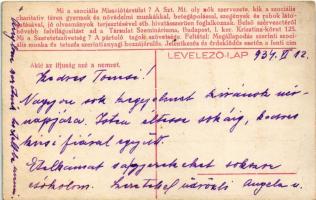 Mi a szociális Missziótársulat? A Szt. Mt. oly nők szervezete, kik a szociális
charitativ téren gyermek és nővédelmi munkákkal, betegápolással, szegények és rabok láto-
gatásával, jó olvasmányok terjesztésével stb. hivatásszerüen foglalkoznak. Belső szervezetéről
bővebb felvilágosítást ad a Társulat Szemináriuma, Budapest, I. ker. Krisztina-körut 125.
Mi a Szeretetszövetség? A pártoló tagok szövetsége. Feltétel: Megállapodás szerinti szoci-
ális munka és tetszés szerinti anyagi hozzájárulás. Jelentkezés és érdeklődés esetén a fenti cim
Aldd az ifjuság ned a nemzet.
LEVELEZŐ-LAP 934. VI 12
Kedves
Nagyon sok kegyelmet kívánok név-
napjára. Isten éltesse sokáig, kedves
fiával együtt.
sokszor
csókolom. Szeretettel üdvözli Angela n.